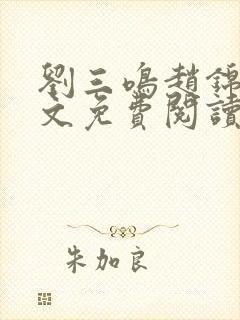 劉三鳴趙錦
文免費閱讀
朱加良